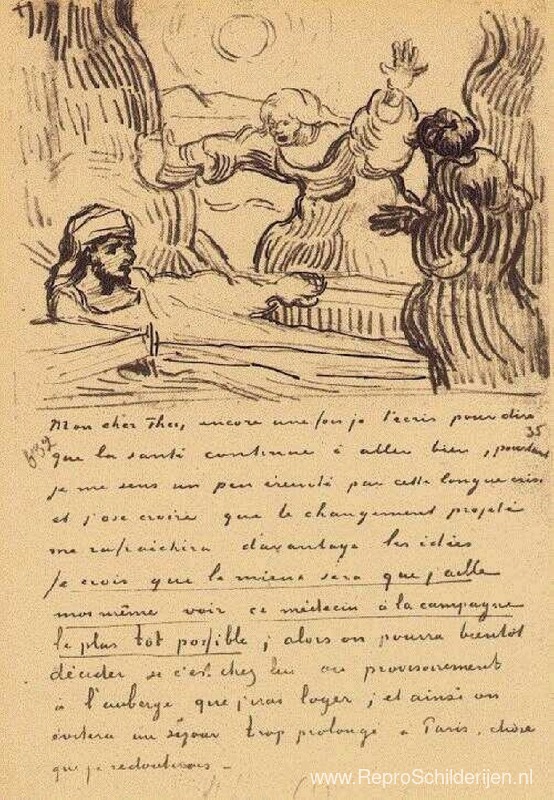 Mon cher Theo, encore une fois je t'écris pour dire
que la santé continue à aller bien, pourtant
je me sens un peu éreinté par cette longue crise
et j'ose croire que le changement projeté
me rafraichira d'avantage les idées
Je crois que le mieux sera que j'aille
moi même voir ce médecin à la campagne
le plus tot possible ; alors on pourra bientot
décider si c'est chez lui ou provisoirement
à l'auberge que j'irai loger ; et ainsi on
évitera un séjour trop prolongé à Paris, chose
que je redouterais –
632
35
www.ReproSchilderijen.nl